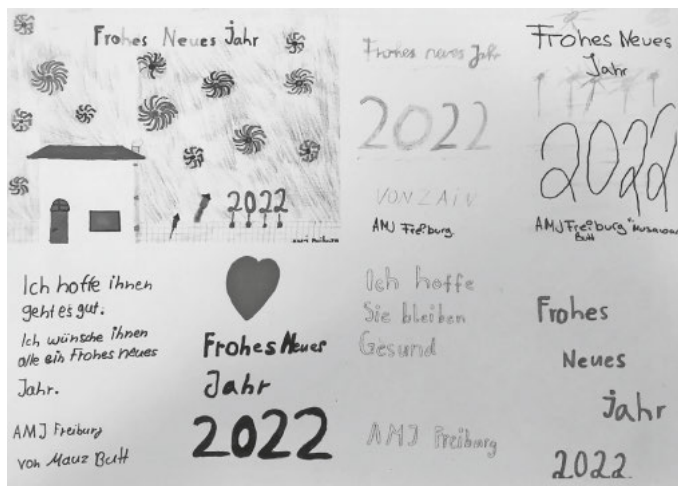 Frohes Neues Jahr
2022
AMJ Freiburg
Frohes neues Jahr
2022
VON ZAIN
AMJ Freiburg
Frohes Neues
Jahr
2022
AMJ Freiburg
Butt
Ich hoffe ihnen
geht es gut.
Ich wünsche ihnen
alle ein Frohes neues
Jahr.
AMJ Freiburg
von Mauz Butt
Frohes Neues
Jahr
2022
Ich hoffe
Sie bleiben
Gesund
AMJ Freiburg
Frohes
Neues
Jahr
2022